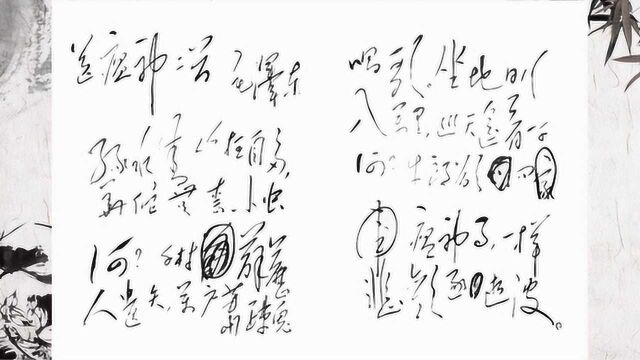 送瘟神二首 毛泽东
绿水青山枉自多,
华佗无奈小虫
何?千村薜荔
人遗矢,万户萧疏鬼
唱歌。坐地日行
八万里,巡天遥看一千
河?牛郎欲问
瘟神事,一样
悲欢逐逝波。